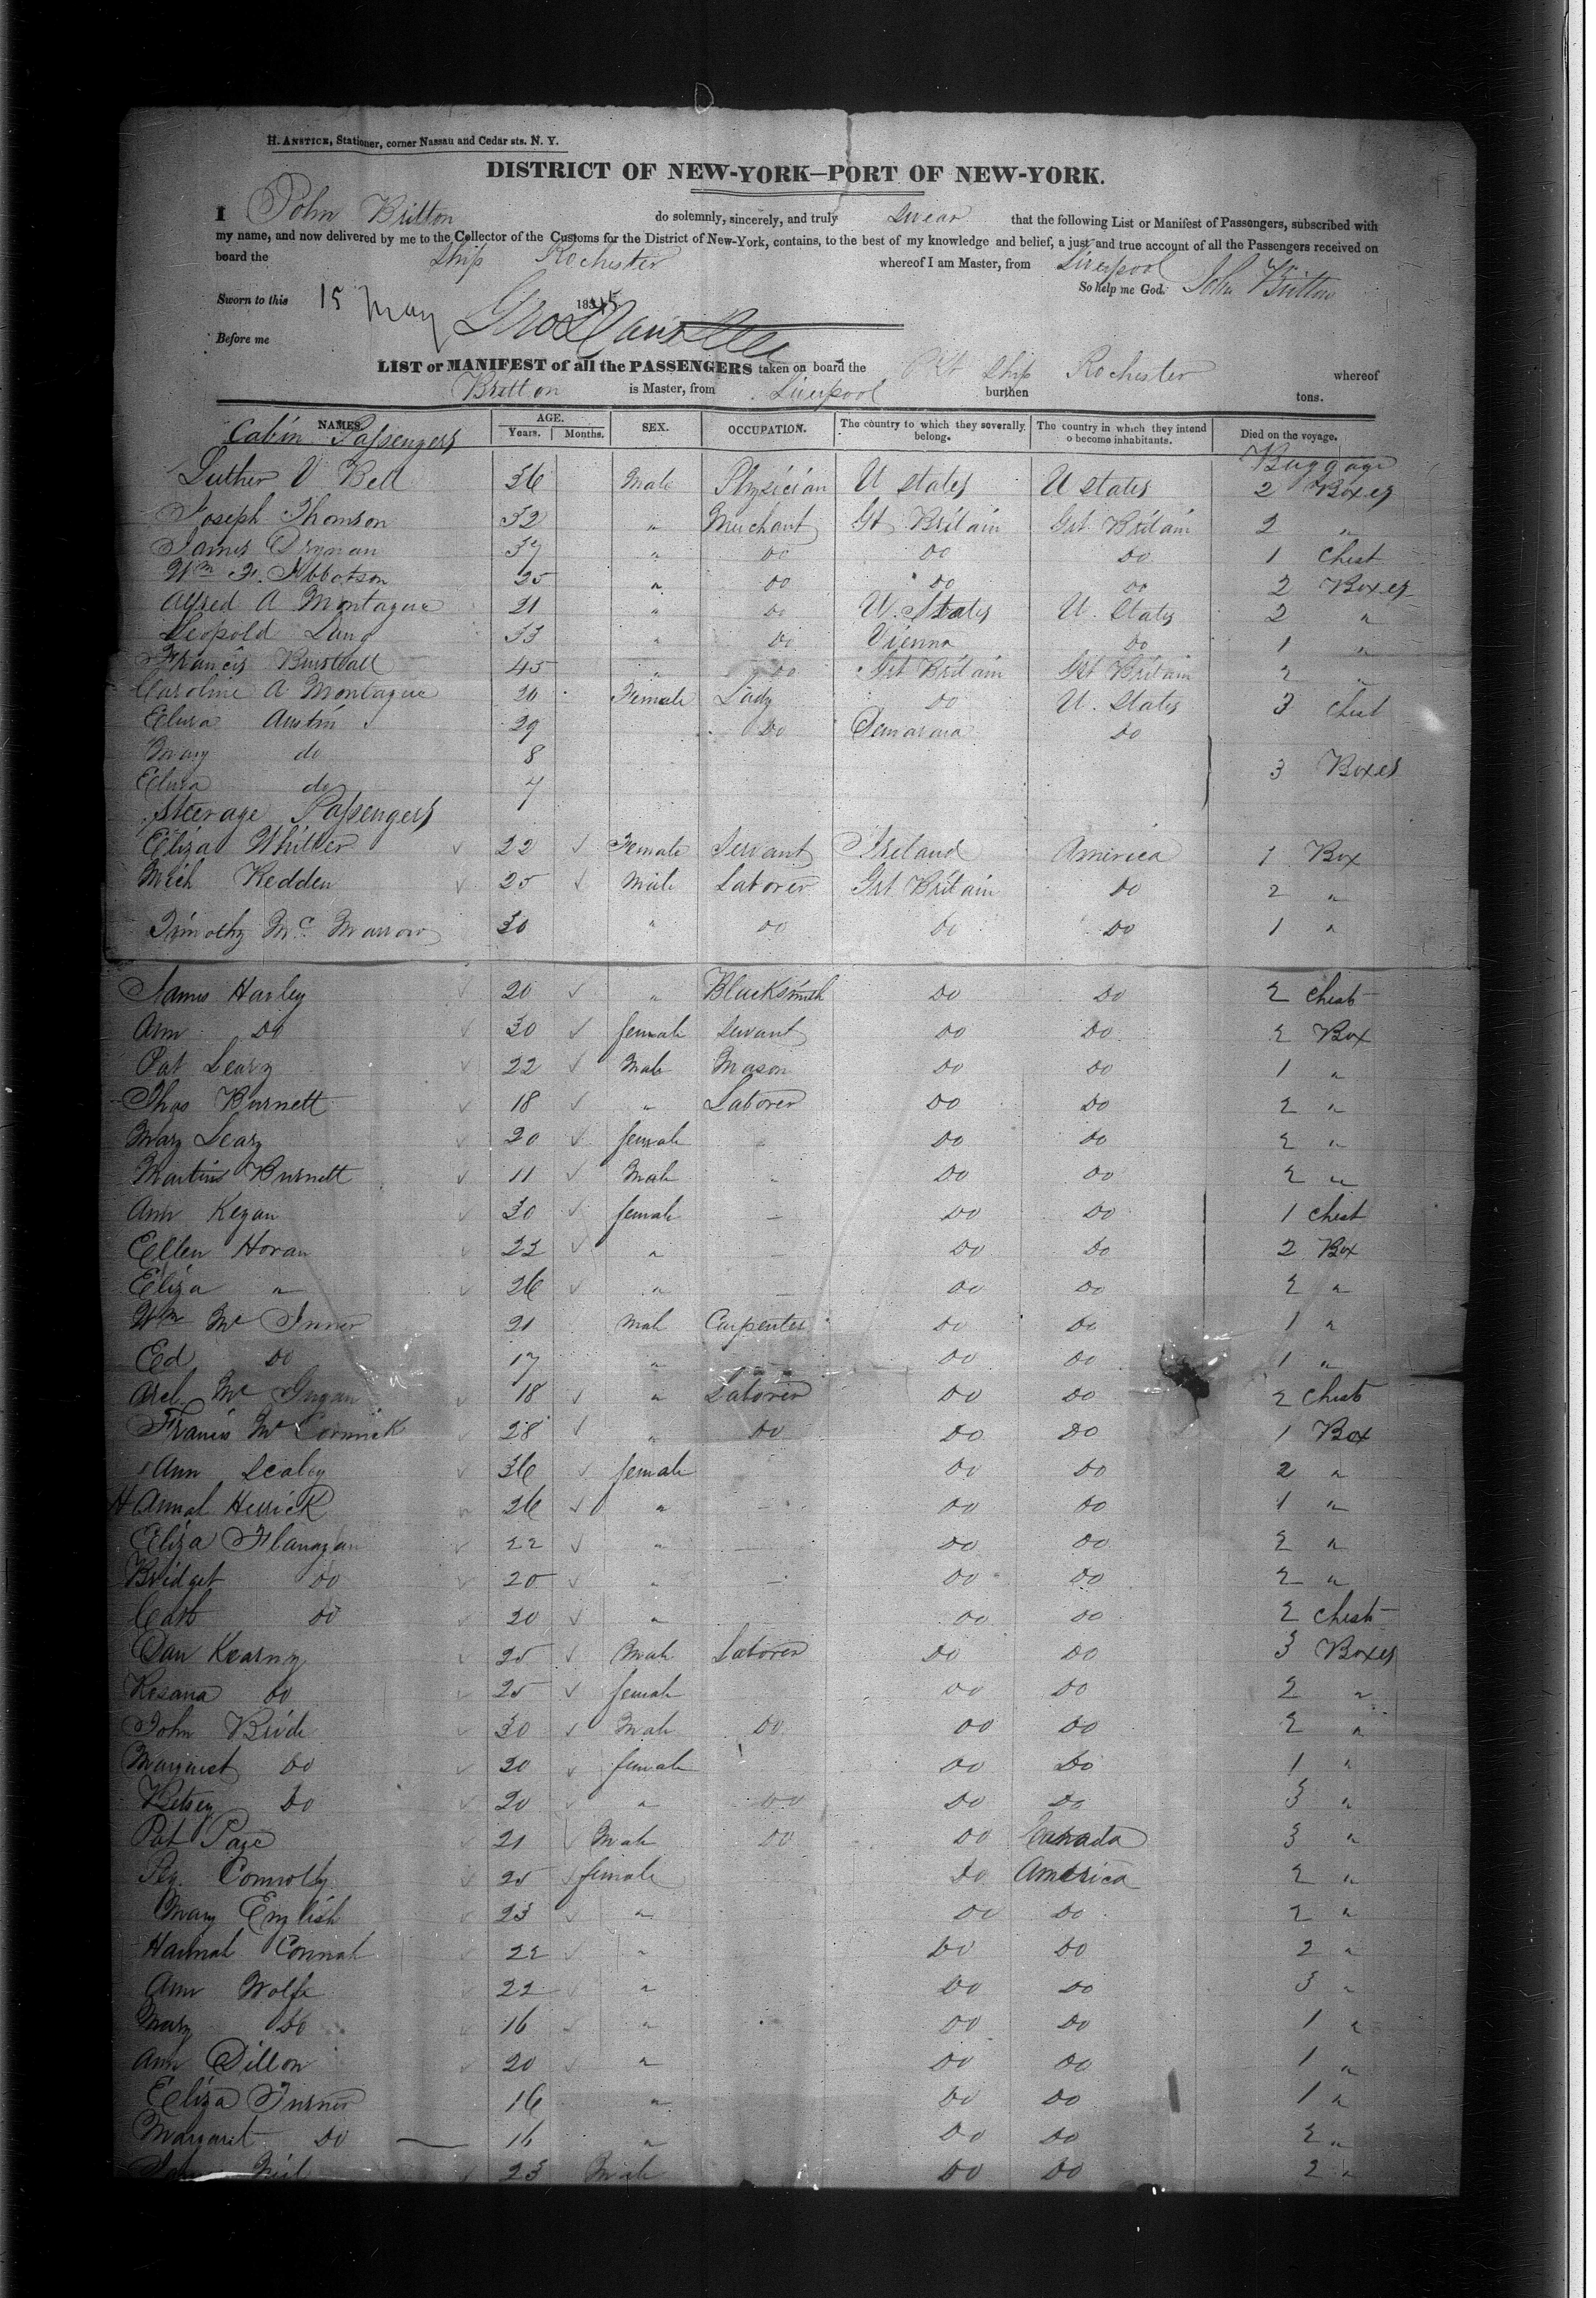 H. ANSTICE, Stationer, corner Nassau and Cedar sts. N. Y.
DISTRICT OF NEW-YORK—PORT OF NEW-YORK.
I John Britton do solemnly, sincerely, and truly swear that the following List or Manifest of Passengers, subscribed with
my name, and now delivered by me to the Collector of the Customs for the District of New-York, contains, to the best of my knowledge and belief, a just and true account of all the Passengers received on
board the Ship Rochester whereof I am Master, from Liverpool
So help me God. John Britton
Sworn to this 15 May 1845
Before me
LIST or MANIFEST of all the PASSENGERS taken on board the Pkt Ship Rochester whereof
Britton is Master, from Liverpool burthen tons.
NAMES. AGE. Years. Months. SEX. OCCUPATION. The country to which they severally belong. The country in which they intend to become inhabitants. Died on the voyage.
Cabin Passengers Baggage
Luther V Bell 36 Male Physician U States U States 2 Boxes
Joseph Thomson 32 " Merchant Gt Britain Grt Britain 2 "
James 37 " Do Do Do 1 Chest
Wm F. Ibbotson 25 " Do Do Do 2 Boxes
Alfred A Montague 21 " Do U. States U. States 2 "
Leopold Lang 33 " Do Vienna Do 1 "
Francis Burstall 45 " Do Grt Britain Grt Britain 2 "
Caroline A Montague 20 Female Lady Do U. States 3 Chest
Eliza Austin 29 Do Demarara Do
Mary do 8
Eliza do 7 3 Boxes
Steerage Passengers
Eliza Whitter 22 Female Servant Ireland America 1 Box
Mich Kedden 25 Male Laborer Grt Britain Do 2 "
Timothy Mc Marrow 30 " Do Do Do 1 "
James Harley 20 " Blacksmith Do Do 2 Chest
Ann Do 30 female Servant Do Do 2 Box
Pat Leary 22 Male Mason Do Do 1 "
Thos Burnett 18 " Laborer Do Do 2 "
Mary Leary 20 female Do Do 2 "
Martin Burnett 11 Male Do Do 2 "
Ann Kegan 30 female — Do Do 1 Chest
Ellen Horan 22 " — Do Do 2 Box
Eliza " 26 " — Do Do 2 "
Wm Mc Inner 21 Male Carpenter Do Do 1 "
Ed Do 17 " Do Do 1 "
Arch Mc 18 " Laborer Do Do 2 Chest
Francis Mc Cormick 28 " Do Do Do 1 Box
Ann Scaley 36 female Do Do 2 "
Hannah Herrick 26 " — Do Do 1 "
Eliza Flanagan 22 " — Do Do 2 "
Bridget Do 20 " — Do Do 2 "
Cath Do 20 " Do Do 2 Chest
Dan Kearney 25 Male Laborer Do Do 3 Boxes
Rosana Do 25 female Do Do 2 "
John Bride 30 Male Do Do Do 2 "
Margaret Do 20 female Do Do 1 "
Betsey Do 20 " Do Do Do 3 "
Pat Page 21 Male Do Do Canada 3 "
Peg. Connolly 25 female Do America 2 "
Mary English 23 " Do Do 2 "
Hannah Connah 22 " Do Do 2 "
Ann Wolfe 22 " Do Do 3 "
Mary Do 16 " Do Do 1 "
Ann Dillon 20 " Do Do 1 "
Eliza Turner 16 " Do Do 1 "
Margaret Do 16 " Do Do 2 "
23 Male Do Do 2 "